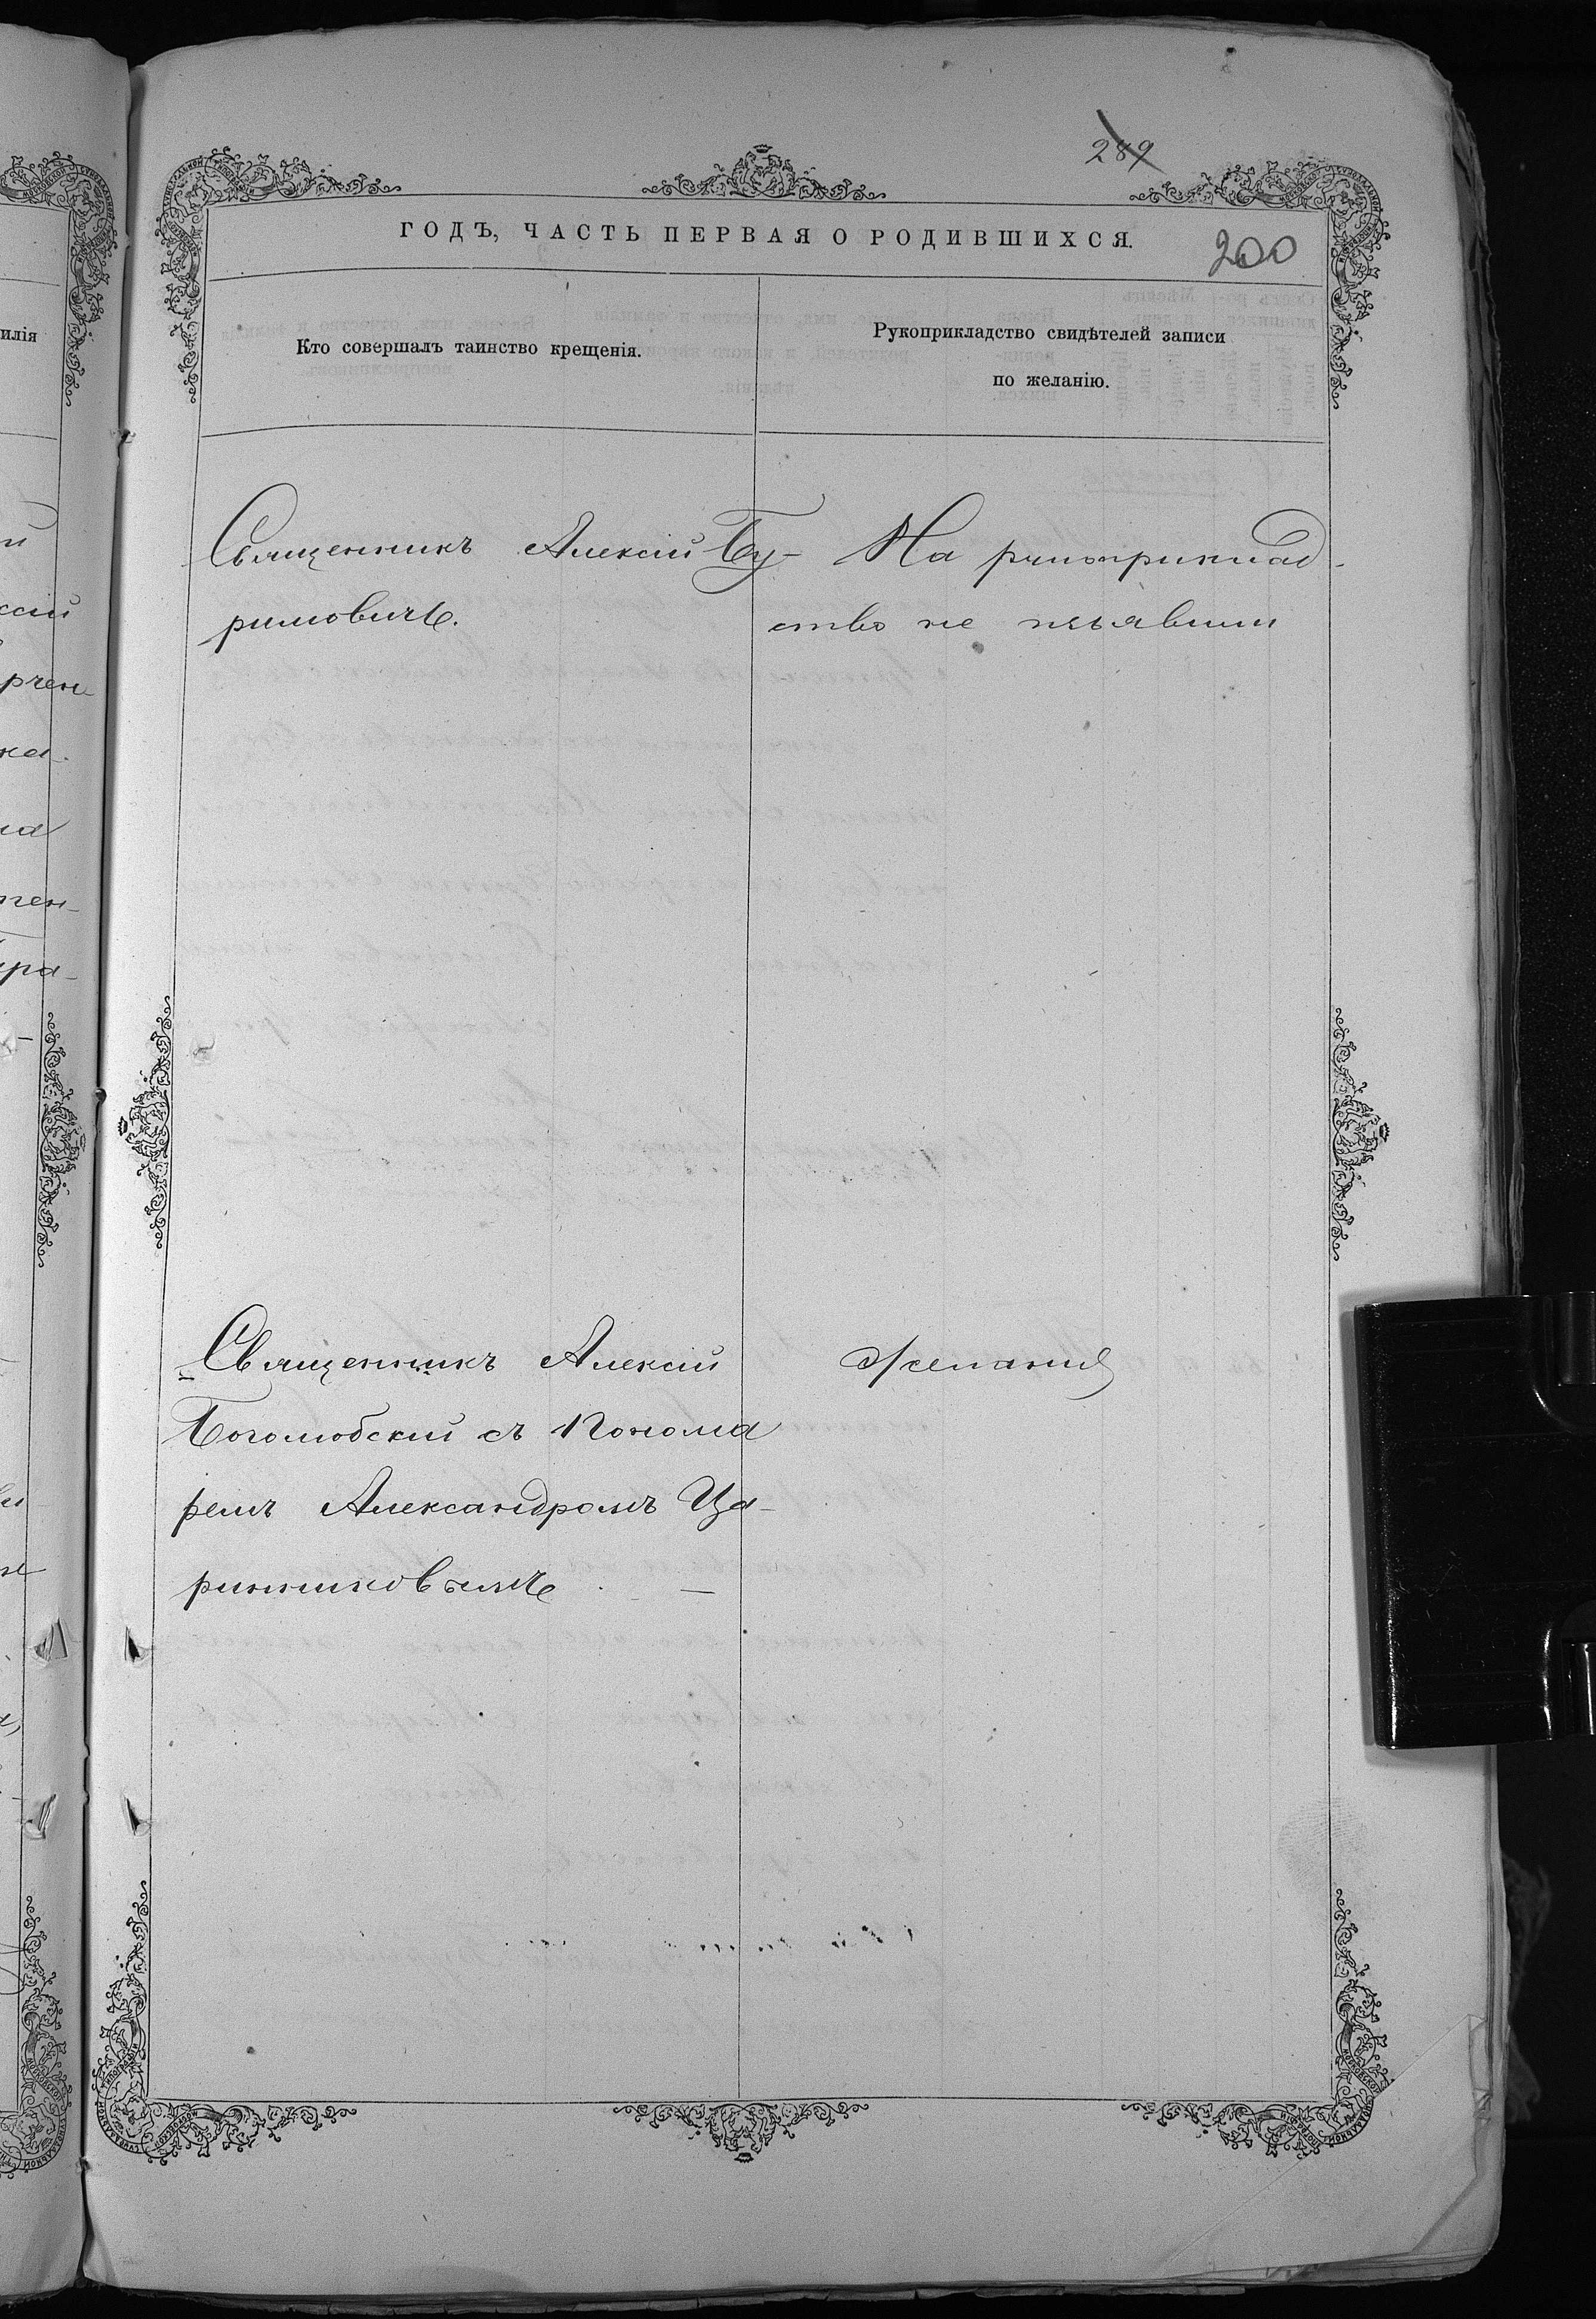 289
ГОДЪ, ЧАСТЬ ПЕРВАЯ О РОДИВШИХСЯ.
200
Кто совершалъ таинство крещенія.
Рукоприкладство свидѣтелей записи
по желанію.
Священникъ Алексій Бу-
римовичъ.
На рукоприклад-
ство не изъявили
Священникъ Алексій
Боголюбскій съ Понома
ремъ Александромъ Ца-
ринниковымъ. —
желанія
илія